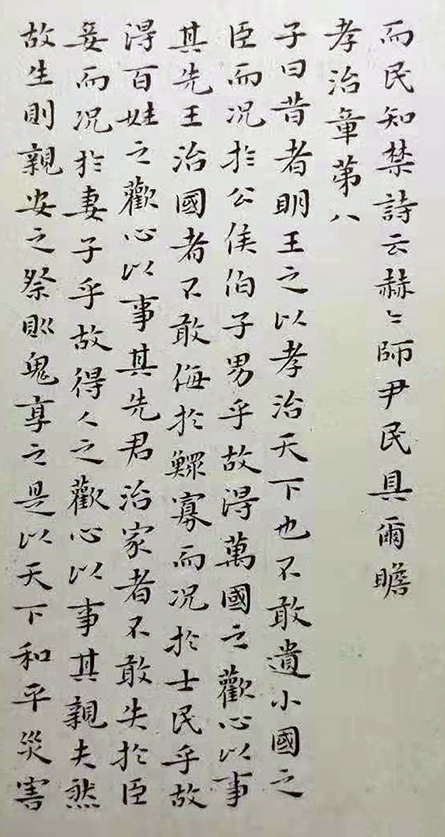 而民知禁詩云赫〻師尹民具爾瞻
孝治章第八
子曰昔者明王之以孝治天下也不敢遺小國之
臣而況於公侯伯子男乎故得萬國之歡心以事
其先王治國者不敢侮於鰥寡而況於士民乎故
得百姓之歡心以事其先君治家者不敢失於臣
妾而況於妻子乎故得人之歡心以事其親夫然
故生則親安之祭則鬼享之是以天下和平災害